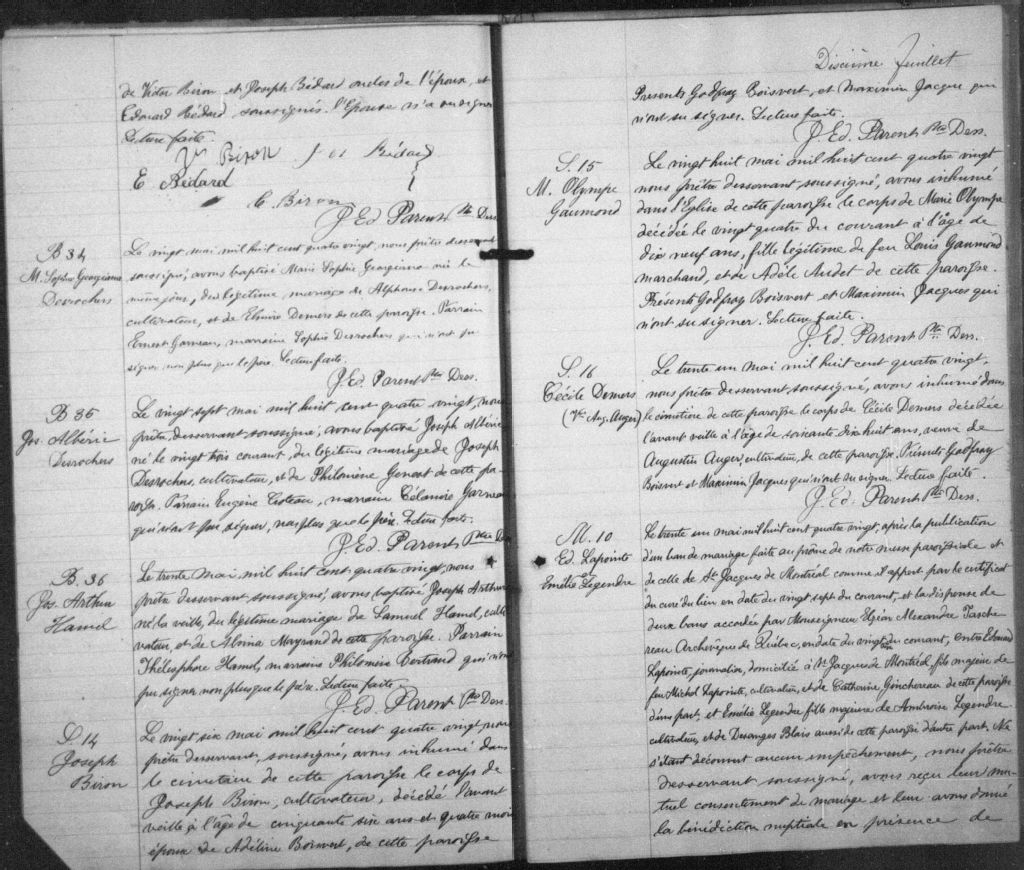 de Victor Biron et Joseph Bédard oncles de l'époux, et
Edouard Bédard soussignés. l'Epouse n'a su signer
Lecture faite.
Vr Biron J et Bédard
E Bédard
C. Biron
J. Ed. Parent Ptre Dess.
B 34
M. Sophie Georgianna
Desrochers
Le vingt mai mil huit cent quatre vingt, nous prêtre desservant
soussigné, avons baptisé Marie Sophie Georgianna née le
même jour, du légitime mariage de Alphonse Desrochers,
cultivateur, et de Elmire Demers de cette paroisse. Parrain
Ernest Garneau, marraine Sophie Desrochers qui n'ont su
signer non plus que le père. Lecture faite.
J. Ed. Parent Ptre Dess.
B 35
Jos. Albéric
Desrochers
Le vingt sept mai mil huit cent quatre vingt, nous
prêtre desservant soussigné, avons baptisé Joseph Albéric
né le vingt trois courant, du légitime mariage de Joseph
Desrochers, cultivateur, et de Philomène Genest de cette pa-
roisse. Parrain Eugène Croteau, marraine Célanire Garneau
qui n'ont su signer, non plus que le père. Lecture faite.
J. Ed. Parent Ptre Dess
B. 36
Jos. Arthur
Hamel
Le trente mai mil huit cent quatre vingt, nous
prêtre desservant, soussigné, avons baptisé Joseph Arthur
né la veille, du légitime mariage de Samuel Hamel, culti-
vateur, et de Albina Mayrand de cette paroisse. Parrain
Thélesphore Hamel, marraine Philomène Bertrand qui n'ont
pu signer non plus que le père. Lecture faite.
J. Ed. Parent Ptre Dess.
S. 14
Joseph
Biron
Le vingt six mai mil huit cent quatre vingt, nous
prêtre desservant, soussigné, avons inhumé dans
le cimetière de cette paroisse le corps de
Joseph Biron, cultivateur, décédé l'avant
veille à l'âge de cinquante six ans et quatre mois
époux de Adéline Boisvert, de cette paroisse
Dixième feuillet
Présents Godfroy Boisvert, et Maximin Jacques qui
n'ont su signer. Lecture faite.
J. Ed. Parent Ptre Dess.
S. 15
M. Olympe
Gaumond
Le vingt huit mai mil huit cent quatre vingt
nous prêtre desservant soussigné, avons inhumé
dans l'Eglise de cette paroisse le corps de Marie Olympe
décédée le vingt quatre du courant à l'âge de
dix neuf ans, fille légitime de feu Louis Gaumond
marchand, et de Adèle Audet de cette paroisse.
Présents Godfroy Boisvert et Maximin Jacques qui
n'ont su signer. Lecture faite.
J. Ed. Parent Ptre Dess.
S. 16
Cécile Demers
(Vve Aug. Auger)
Le trente un mai mil huit cent quatre vingt,
nous prêtre desservant, soussigné, avons inhumé dans
le cimetière de cette paroisse le corps de Cécile Demers décédée
l'avant veille à l'âge de soixante dix huit ans, veuve de
Augustin Auger, cultivateur, de cette paroisse. Présents Godfroy
Boisvert et Maximin Jacques qui n'ont su signer. Lecture faite.
J. Ed. Parent Ptre Dess.
M. 10
Ed. Lapointe
et
Emélie Legendre
Le trente un mai mil huit cent quatre vingt, après la publication
d'un ban de mariage faite au prône de notre messe paroissiale et
de celle de St. Jacques de Montréal comme il appert par le certificat
du curé du lieu en date du vingt sept du courant, et la dispense de
deux bans accordée par Monseigneur Elzéar Alexandre Tasche-
reau Archevêque de Québec, en date du vingt du courant, entre Edouard
Lapointe, journalier, domicilié à St Jacques de Montréal, fils majeur de
feu Michel Lapointe, cultivateur, et de Catherine Ginchereau de cette paroisse
d'une part, et Emélie Legendre fille majeure de Ambroise Legendre
cultivateur, et de Desanges Blais aussi de cette paroisse d'autre part. Ne
s'étant découvert aucun empêchement, nous prêtre
desservant soussigné, avons reçu leur mu-
tuel consentement de mariage et leur avons donné
la bénédiction nuptiale en présence de